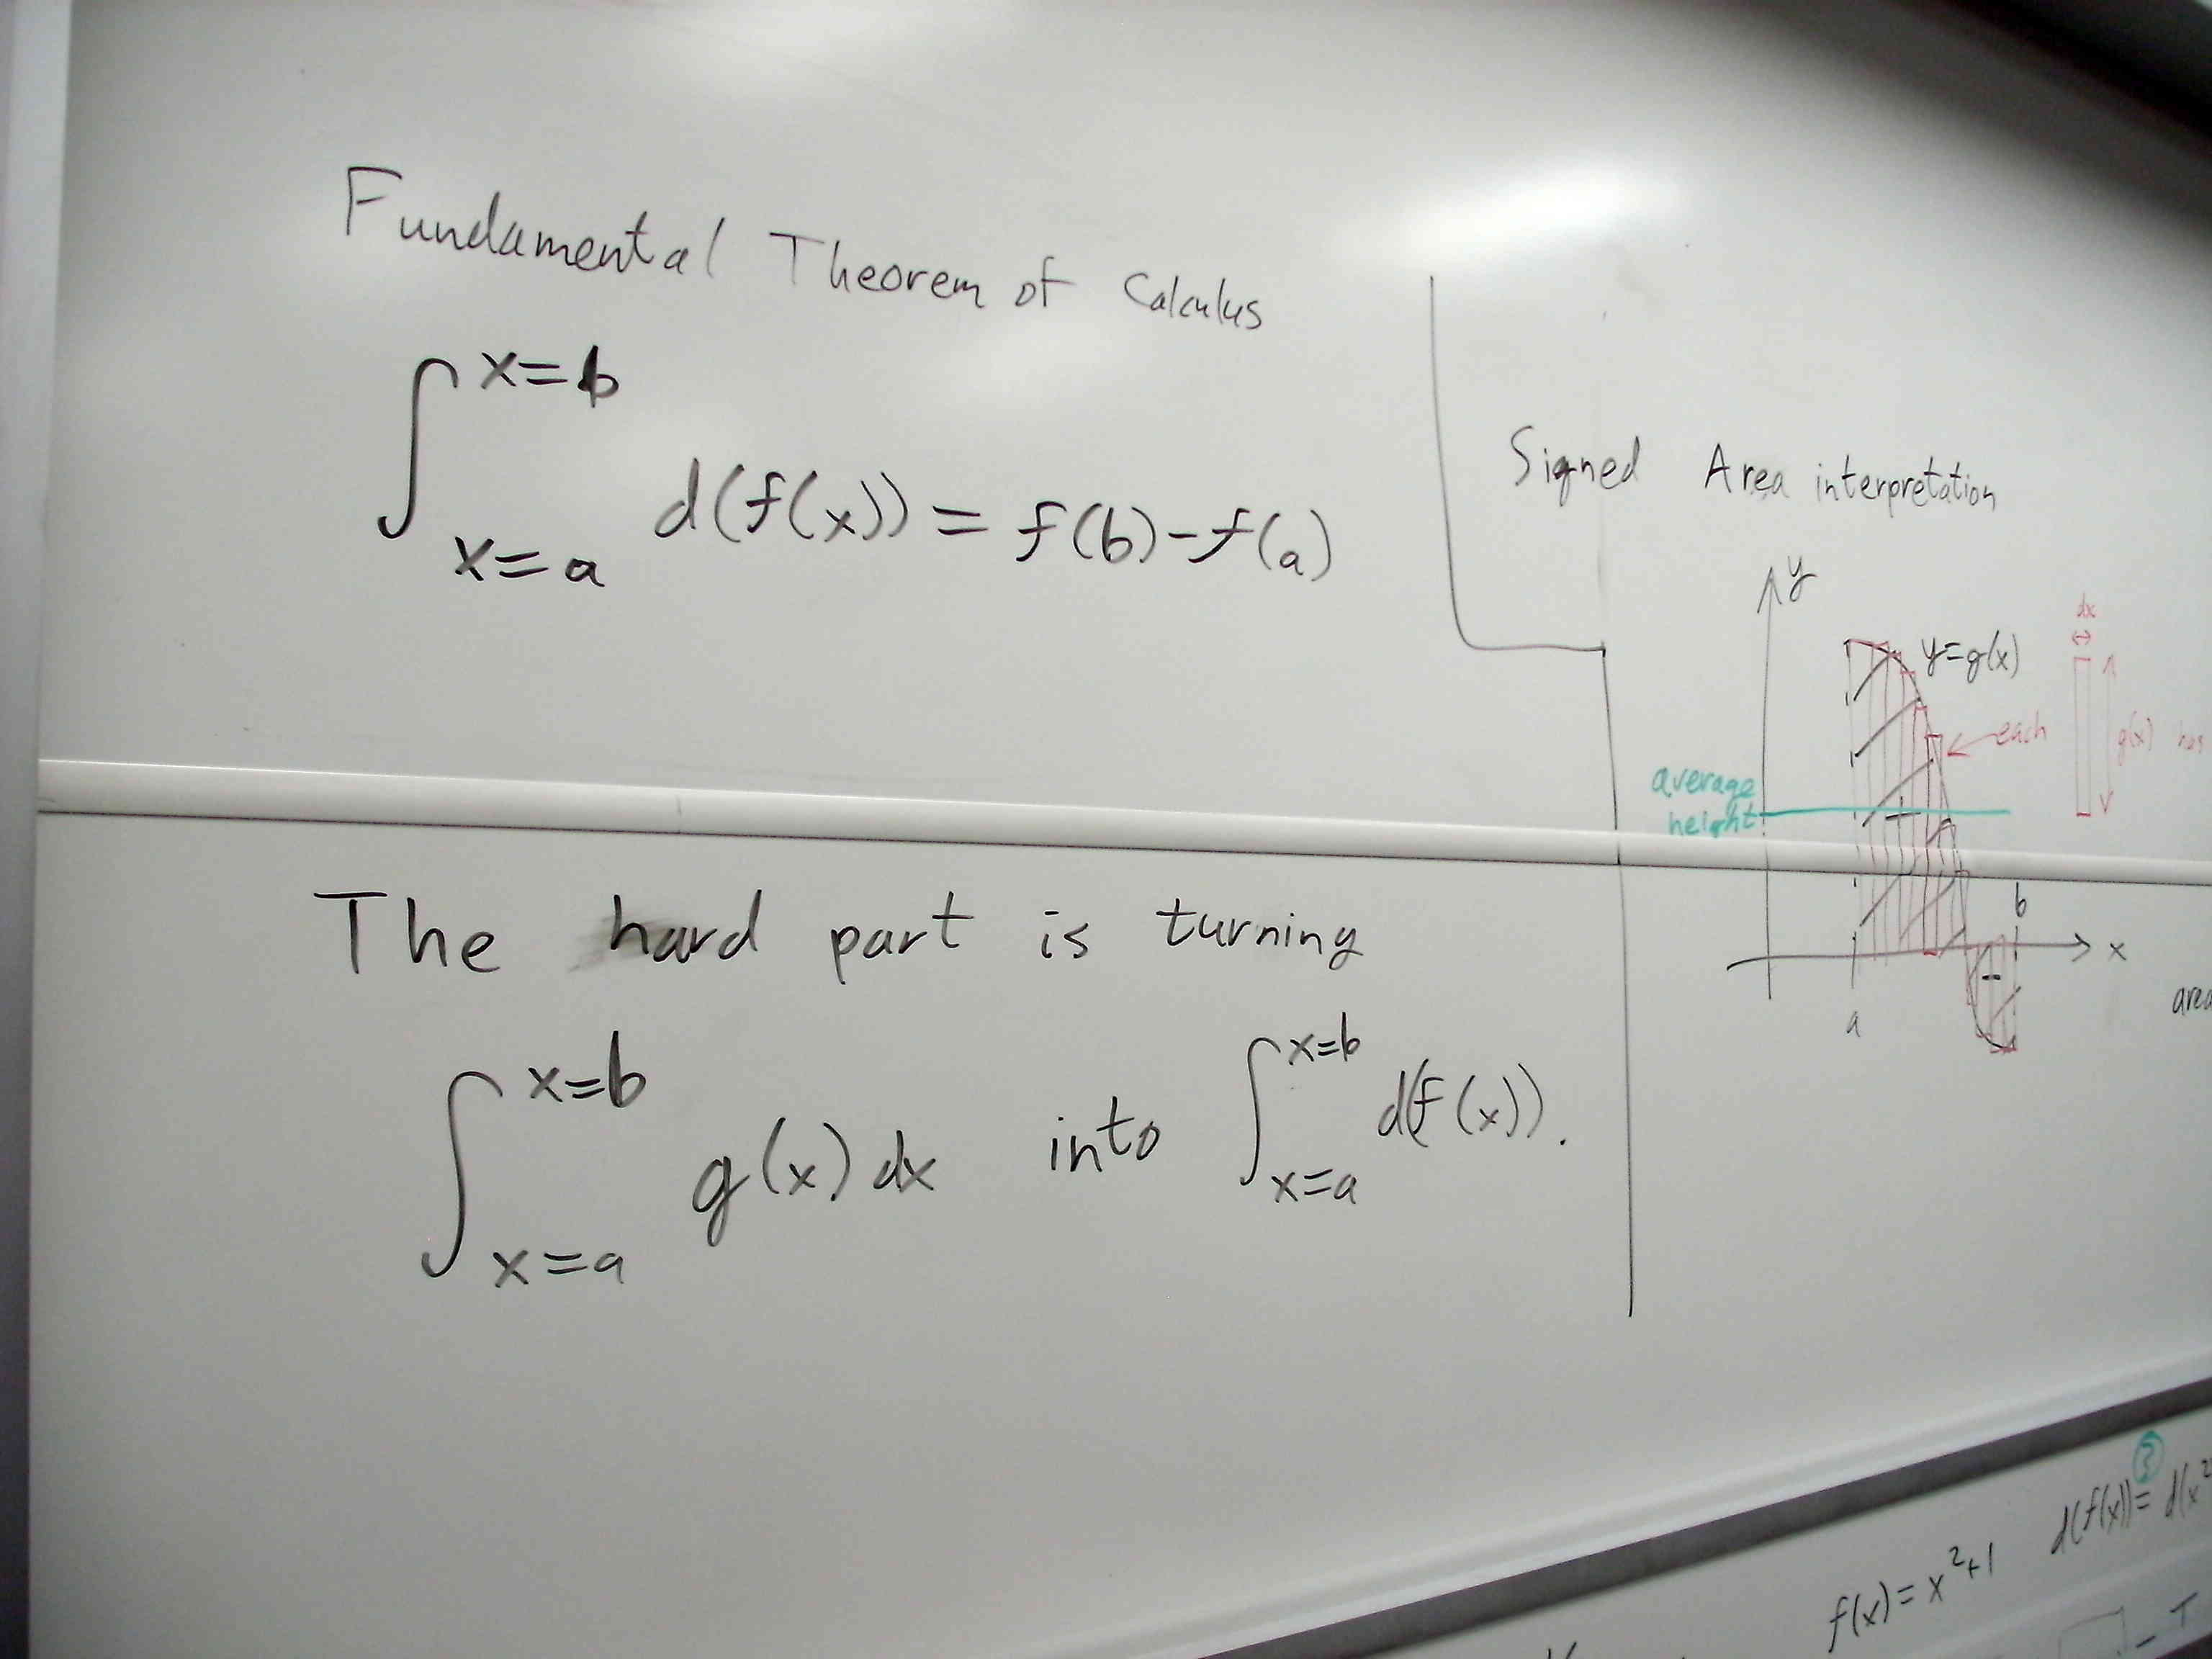 Fundamental Theorem of Calculus
∫ x=b x=a d(f(x)) = f(b)-f(a)
The hard part is turning
∫ x=b x=a g(x) dx into ∫ x=b x=a d(f(x)).
Signed Area interpretation
y
y=g(x)
dx
each
g(x) has
average
height
+
b
x
-
a
area
f(x) = x²+1
3
d(f(x)) = d(x²